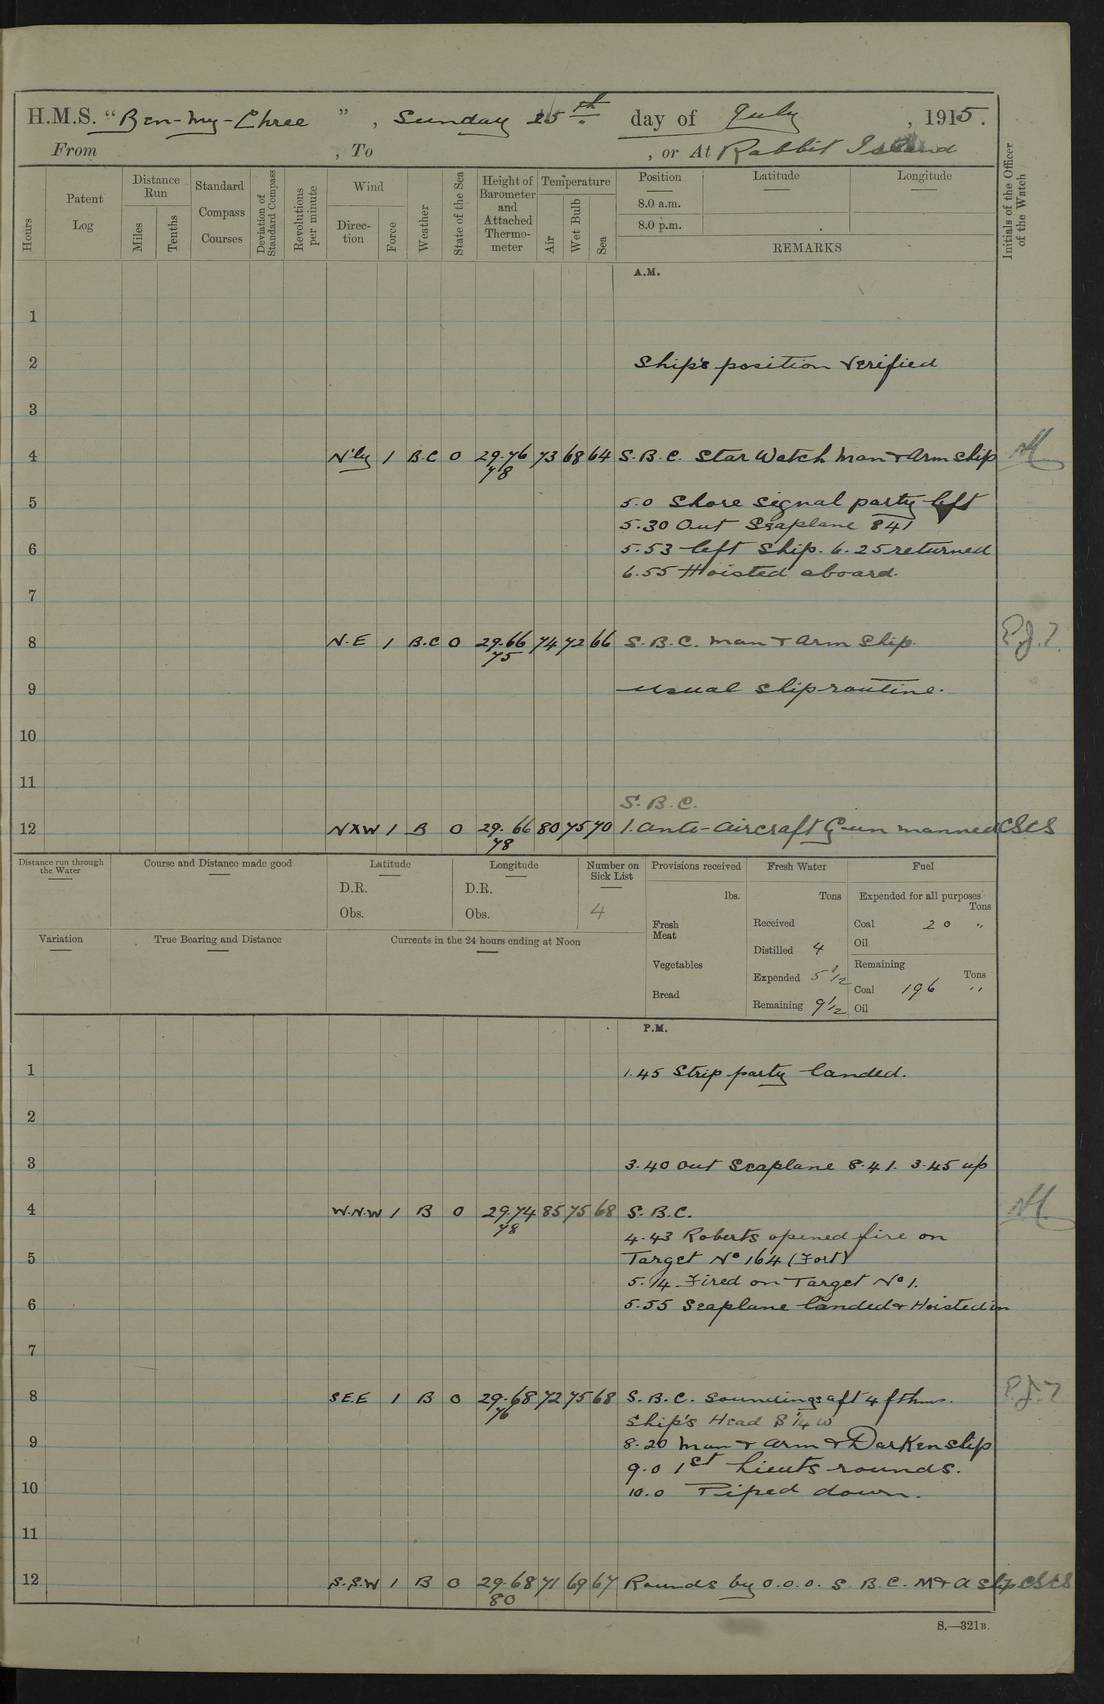 H.M.S. "Ben-my-Chree", Sunday 25th day of July, 1915.
From , To , or At Rabbit Island
Hours
Patent Log
Distance Run
Miles
Tenths
Standard Compass Courses
Deviation of Standard Compass
Revolutions per minute
Wind
Direction
Force
Weather
State of the Sea
Height of Barometer and Attached Thermometer
Temperature
Air
Wet Bulb
Sea
Position
8.0 a.m.
8.0 p.m.
Latitude
Longitude
REMARKS
Initials of the Officer of the Watch
A.M.
1
2 Ship's position verified
3
4 N'ly 1 B.C 0 29.76 73 68 64 S.B.C. Star Watch Man & Arm ship
78
5 5.0 Shore signal party left
5.30 Out Seaplane 841
6 5.53 left Ship. 6.25 returned
6.55 Hoisted aboard.
7
8 N.E 1 B.C 0 29.66 74 72 66 S.B.C. man & arm ship.
75
9 usual ship routine.
10
11
S.B.C.
12 NXW 1 B 0 29.66 80 75 70 1. anti-aircraft Gun manned
78
Distance run through the Water
Course and Distance made good
Latitude
D.R.
Obs.
Longitude
D.R.
Obs.
Number on Sick List
4
Provisions received
lbs.
Fresh Meat
Vegetables
Bread
Fresh Water
Tons
Received
Distilled 4
Expended 5 1/2
Remaining 9 1/2
Fuel
Expended for all purposes
Tons
Coal 20 "
Oil
Remaining
Tons
Coal 196 "
Oil
Variation
True Bearing and Distance
Currents in the 24 hours ending at Noon
P.M.
1 1.45 Strip party landed.
2
3 3.40 out Seaplane 8.41. 3.45 up
4 W.N.W 1 B 0 29.74 85 75 68 S.B.C.
78
4.43 Roberts opened fire on
5 Target No 164 (Fort)
5.14 Fired on Target No 1.
6 5.55 Seaplane landed & Hoisted in
7
8 SEE 1 B 0 29.68 72 75 68 S.B.C. Soundings aft 4 fthms.
76
Ship's Head S 1/4 W
9 8.20 Man & arm & Darken ship
9.0 1st Lieuts rounds.
10 10.0 Piped down.
11
12 S.S.W 1 B 0 29.68 71 69 67 Rounds by O.O.O. S.B.C. M & A Ship
80
S.—321B.